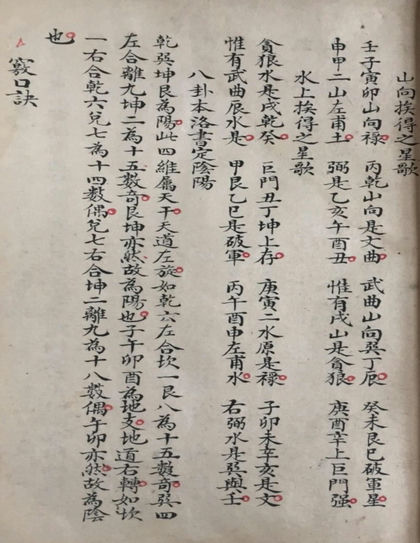 山向挨得之星歌
壬子寅卯山向祿 丙乾山向是文曲 武曲山向巽丁辰 癸未艮巳破軍星
申甲二山左甫土 弼是乙亥午酉丑 惟有戌山是貪狼 庚酉辛上巨門强
水上挨得之星歌
貪狼水是戌乾癸 巨門丑丁坤上存 庚寅二水原是祿 子卯未辛亥是文
惟有武曲辰水是 甲艮乙巳是破軍 丙午酉申左甫水 右弼水是巽與壬
八卦本洛書定陰陽
乾巽坤艮為陽此四維屬天干天道左旋如乾六左合坎一艮八為十五數奇巽四
左合離九坤二為十五數奇艮坤亦然故為陽也子午卯酉為地支地道右轉如坎
一右合乾六兌七為十四數偶兌七右合坤二離九為十八數偶午卯亦然故為陰
也
竅口訣